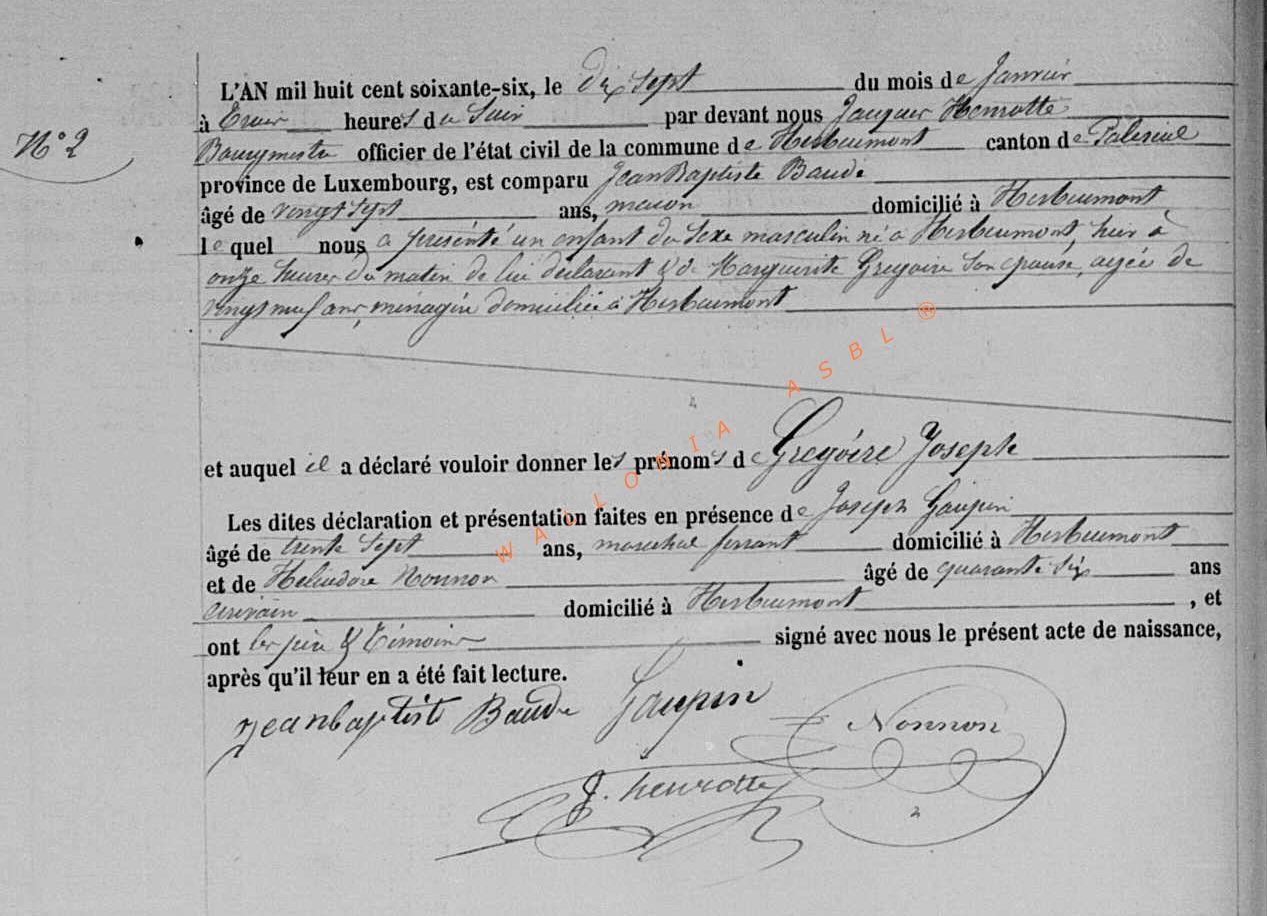 L'AN mil huit cent soixante-six, le dix sept du mois de Janvier
N° 2
à Trois heures du Soir par devant nous Jacques Henrotte
Bourgmestre officier de l'état civil de la commune de Herbeumont canton de Paliseul
province de Luxembourg, est comparu Jean Baptiste Baudé
âgé de vingt sept ans, macon domicilié à Herbeumont
le quel nous a présenté un enfant du Sexe masculin né à Herbeumont, hier à
onze heures du matin de lui déclarant & de Marguerite Gregoire Son epouse, agée de
vingt neuf ans, menagère domiciliée à Herbeumont
et auquel il a déclaré vouloir donner les prénoms de Gregóire Joseph
Les dites déclaration et présentation faites en présence de Joseph Gaupin
âgé de trente Sept ans, marechal ferrant domicilié à Herbeumont
et de Heliodore Nonnon âgé de quarante Six ans
ecrivain domicilié à Herbeumont , et
ont les père & Témoins signé avec nous le présent acte de naissance,
après qu'il leur en a été fait lecture.
Jeanbaptist Baude Gaupin Nonnon
J. henrotte
WALLONIA ASBL ®